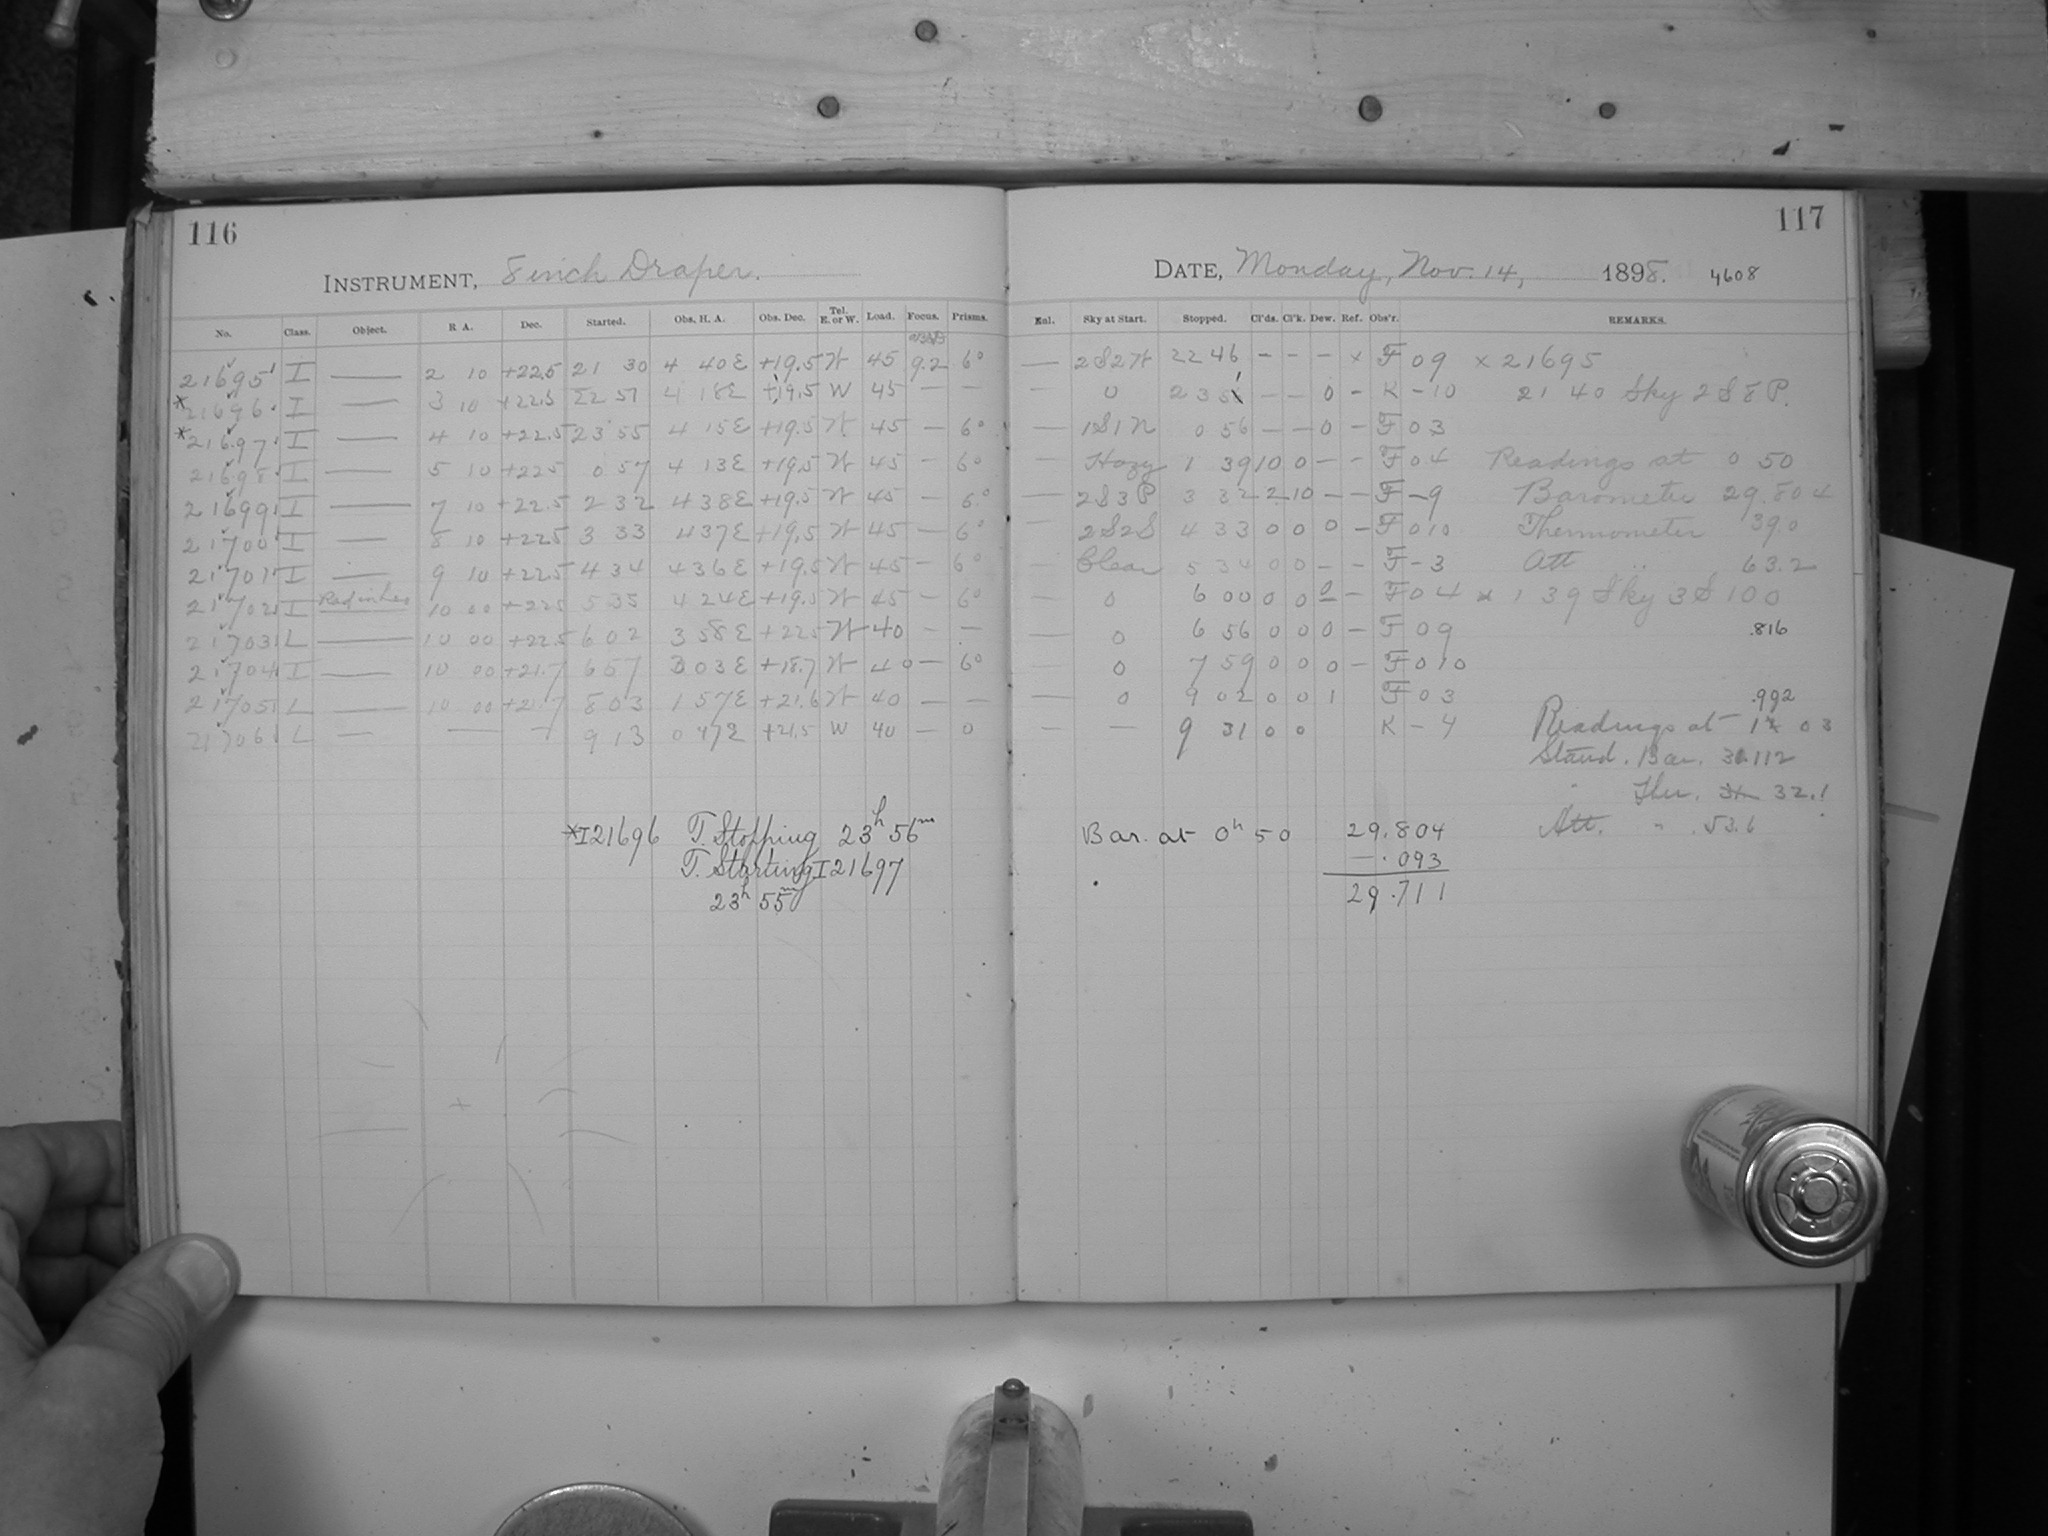 116
INSTRUMENT, 8 inch Draper.
No. Class. Object. R A. Dec. Started. Obs. H. A. Obs. Dec. Tel. E. or W. Load. Focus. Prisms.
21695 I — 2 10 +22.5 21 30 4 40E +19.5 W 45 9.2 6°
*21696 I — 3 10 +22.5 22 57 4 18E +19.5 W 45 — —
*21697 I — 4 10 +22.5 23 55 4 15E +19.5 W 45 — 6°
21698 I — 5 10 +22.5 0 57 4 13E +19.5 W 45 — 6°
21699 I — 7 10 +22.5 2 32 4 38E +19.5 W 45 — 6°
21700 I — 8 10 +22.5 3 33 4 37E +19.5 W 45 — 6°
21701 I — 9 10 +22.5 4 34 4 36E +19.5 W 45 — 6°
21702 I 10 00 +22.5 5 35 4 24E +19.5 W 45 — 6°
21703 L — 10 00 +22.5 6 02 3 58E +22.5 W 40 — —
21704 I — 10 00 +21.7 6 57 3 03E +18.7 W 40 — 6°
21705 L — 10 00 +21.7 8 03 1 57E +21.6 W 40 — —
21706 L — — — 9 13 0 47E +21.5 W 40 — 0
*I21696 T. Stopping 23h 56m
T. Starting I21697
23h 55m
117
DATE, Monday, Nov. 14, 1898. 4608
Enl. Sky at Start. Stopped. Cl'ds. Cl'k. Dew. Ref. Obs'r. REMARKS.
— 2S2W 22 46 — — — x F 09 x 21695
— 0 23 5 — — 0 — K — 10 21 40 Sky 2S8P.
— 1S1N 0 56 — — 0 — F 03
— Hazy 1 39 10 0 — — F 04 Readings at 0 50
— 2S3P 3 32 2 10 — — F — 9 Barometer 29.804
— 2S2S 4 33 0 0 0 — F 010 Thermometer 39.0
— Clear 5 34 0 0 — — F — 3 Att " 63.2
— 0 6 00 0 0 0 — F 04 x 1 39 Sky 3S100
— 0 6 56 0 0 0 — F 09 .816
0 7 59 0 0 0 — F 010
— 0 9 02 0 0 1 F 03 .992
— — 9 31 0 0 K — 4 Readings at 1 03
Stand. Bar. 30.112
" Ther. 32.1
Att. " 53.6
Bar. at 0h 50 29.804
— .093
29.711